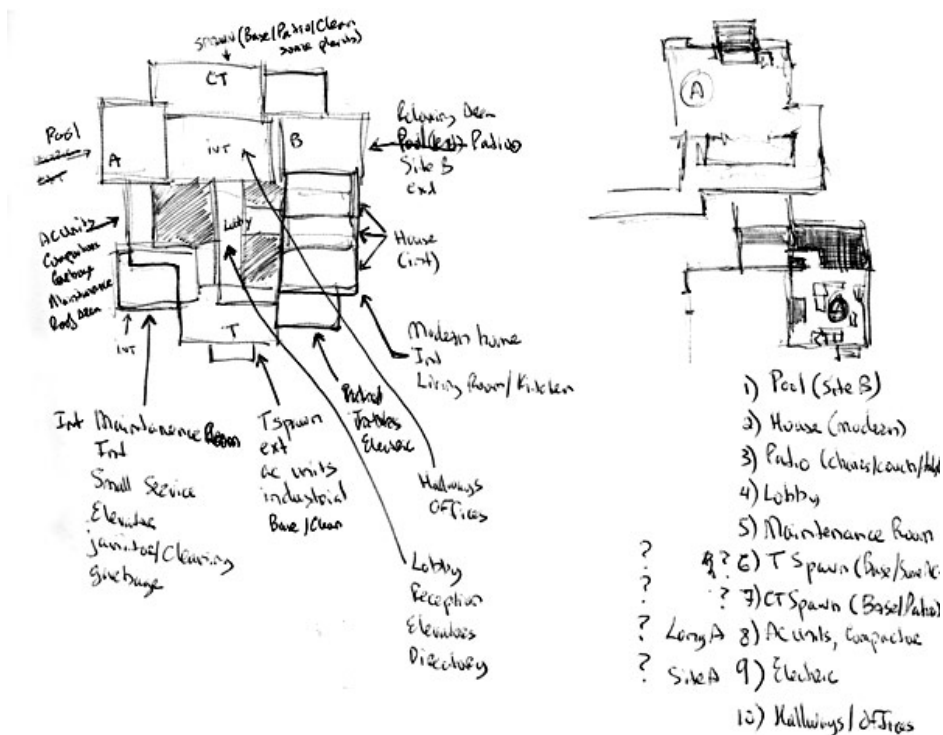 Spawn (Base/Patio/Clean
some plants)
CT
Pool
A
INT
B
Relaxing Area
Patio
Site B
ext
AC Units
Compactors
Garbage
Maintenance
Roof Area
INT
Lobby
House
(int)
T
Modern home
Int
Living Room/Kitchen
Int Maintenance Room
Int
Small Service
Elevator
janitor/Cleaning
garbage
T Spawn
ext
ac units
industrial
Base/Clean
Electric
Hallways
Offices
Lobby
Reception
Elevators
Directory
A
A
1) Pool (Site B)
2) House (modern)
3) Patio (chairs/couch/
4) Lobby
5) Maintenance Room
? ? 6) T Spawn (Base/
? ? 7) CT Spawn (Base/Patio)
? Long A 8) AC units, Compactor
? Site A 9) Electric
10) Hallways/Offices